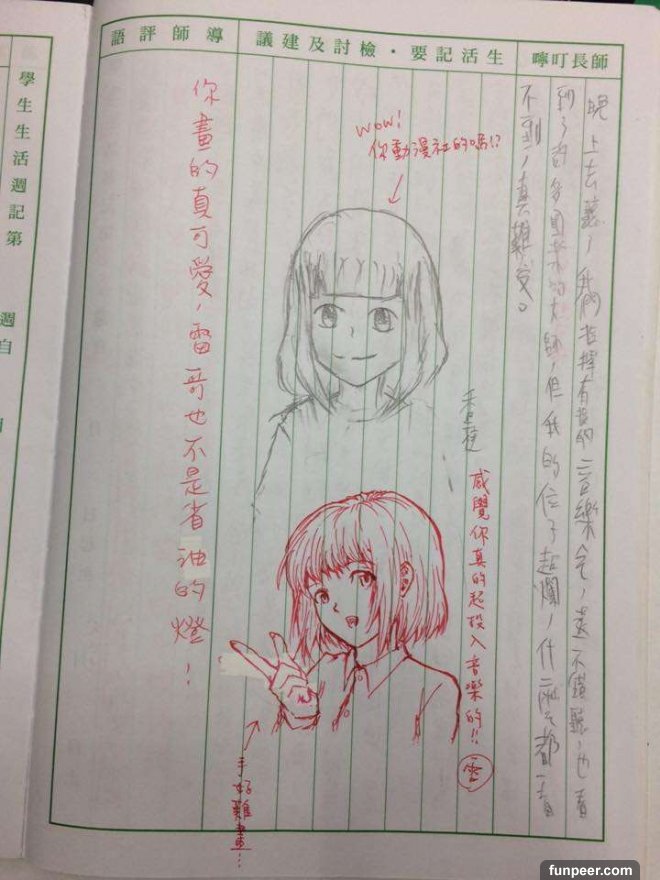 師長叮嚀
生活記要・檢討及建議
導師評語
晚上去聽了我們指揮有指的音樂會，還不錯聽，也看
到了許多國外的大師，但我的位子超爛，什麼都看
不到，真難受。
WOW!
你動漫社的嗎!?
感覺你真的超投入音樂的!!
雷
手好難畫!!
你畫的真可愛，雷哥也不是省油的燈！
學生生活週記第 週
自
funpeer.com